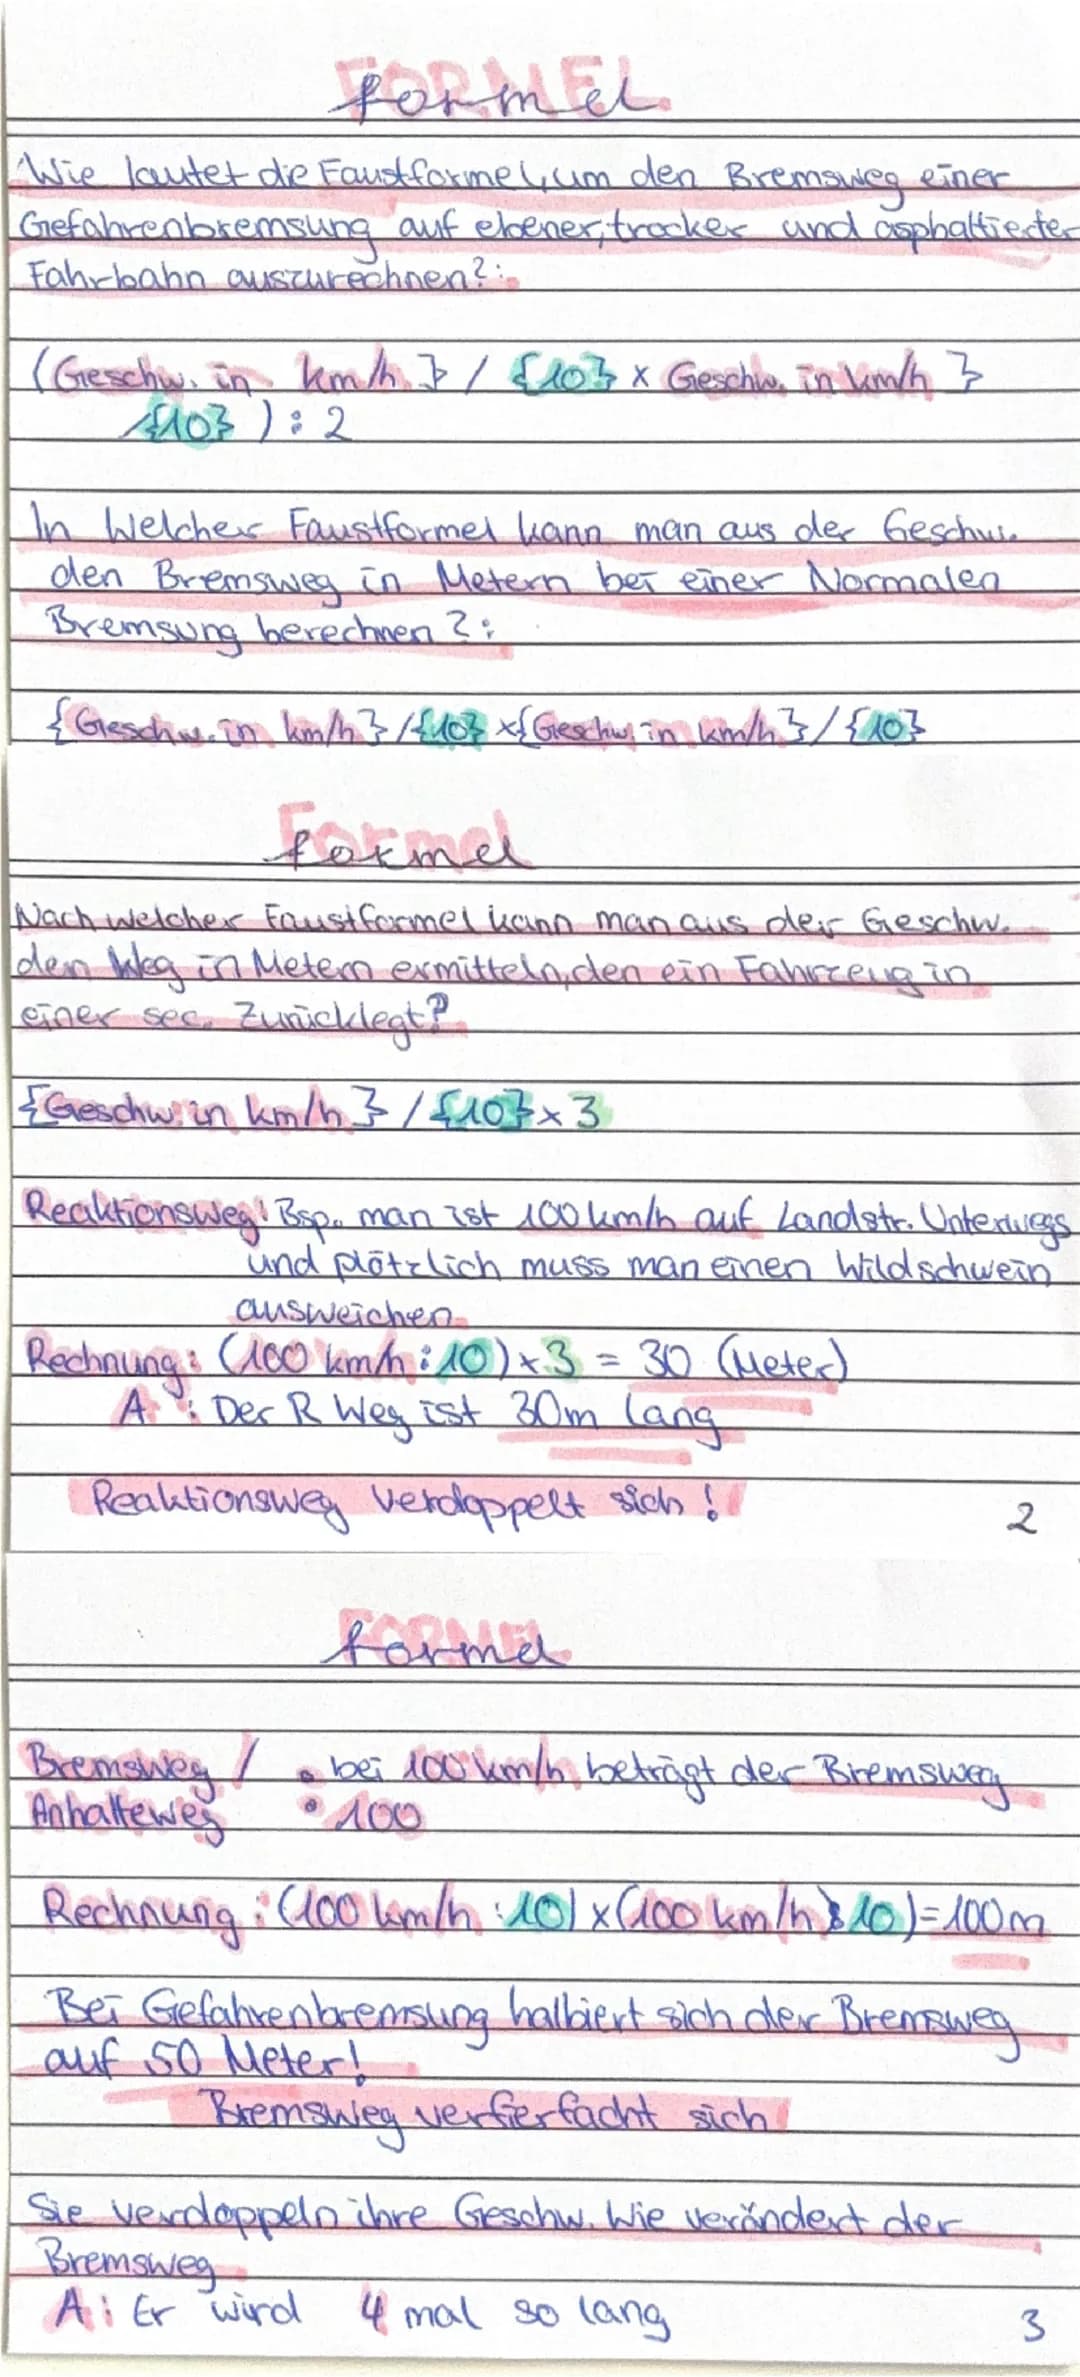 Formel
Wie lautet die Faustformel, um den Bremsweg einer
Gefahrenbremsung auf ebener, trocker und asphaltierter
Fahrbahn auszurechnen?:
(Geschw. in km/h } / {10} x Geschw. in km/h }
/{10} ) : 2
In Welcher Faustformel kann man aus der Geschw.
den Bremsweg in Metern bei einer Normalen
Bremsung berechnen ? :
{Geschw. in km/h } /{10} x{Geschw. in km/h } / {10}
Formel
Nach welcher Faustformel kann man aus der Geschw.
den Weg in Metern ermitteln, den ein Fahrzeug in
einer sec. Zurücklegt?
{Geschw. in km/h } / {10} x 3
Reaktionsweg: Bsp. man ist 100 km/h auf Landstr. Unterwegs
und plötzlich muss man einen Wildschwein
ausweichen.
Rechnung: (100 km/h : 10) x 3 = 30 (Meter)
A : Der R Weg ist 30m lang
Reaktionsweg verdoppelt sich !
2
Formel
Bremsweg / • bei 100 km/h beträgt der Bremsweg
Anhalteweg : 100
Rechnung : (100 km/h : 10) x (100 km/h : 10) = 100m
Bei Gefahrenbremsung halbiert sich der Bremsweg
auf 50 Meter!
Bremsweg verfierfacht sich !
Sie verdoppeln ihre Geschw. Wie verändert der
Bremsweg
A : Er wird 4 mal so lang
3